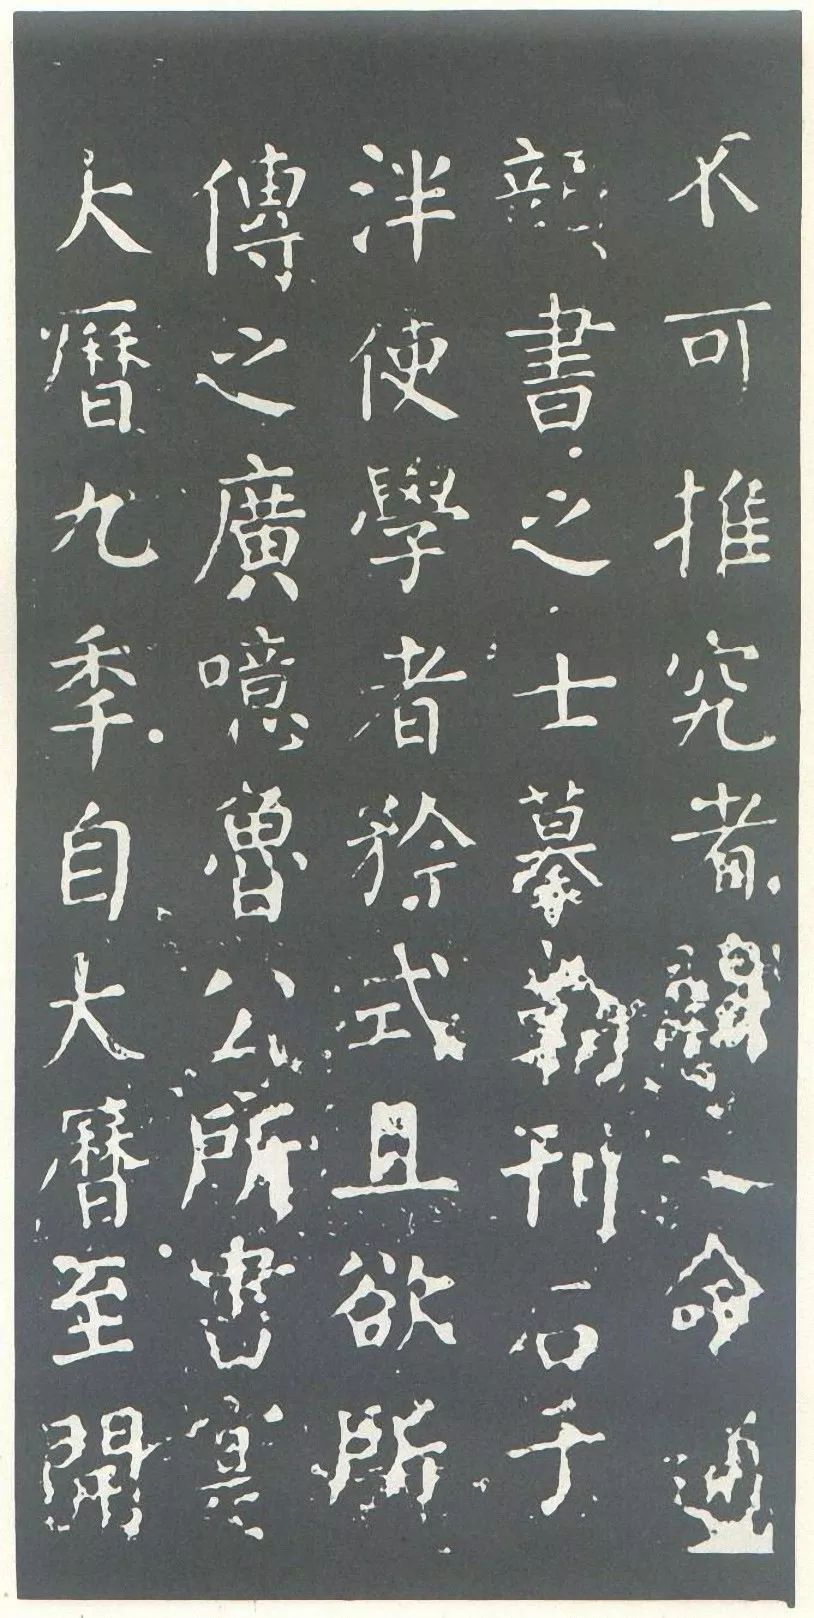 不可推究者輒命通
顔書之士摹勒刊石于
泮使學者矜式且欲所
傳之廣噫魯公所書寔
大曆九季自大曆至開